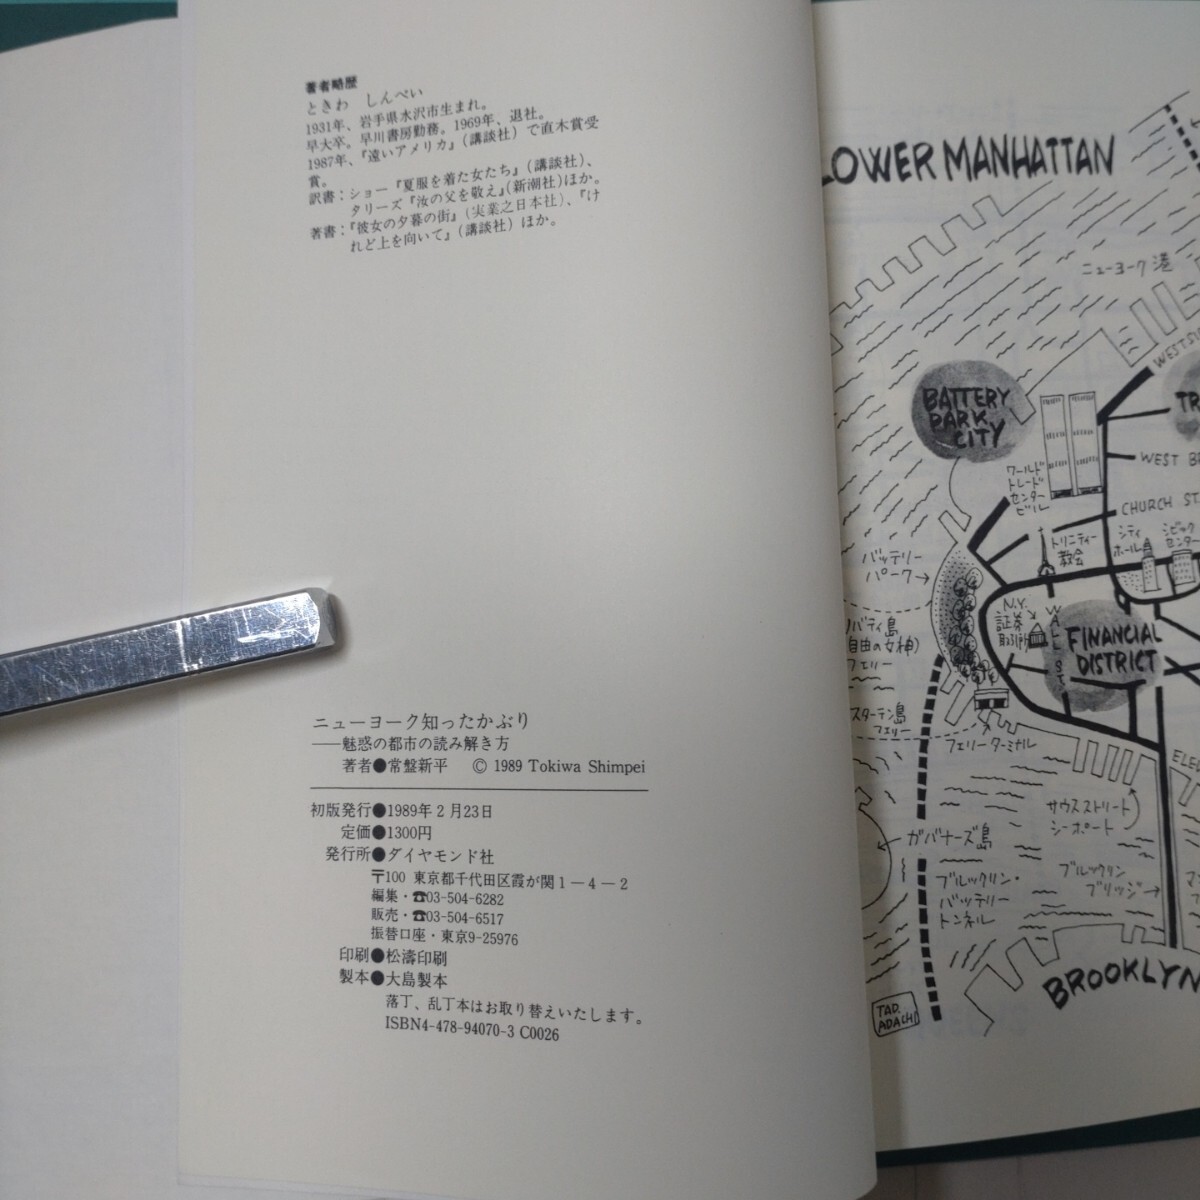 著者略歴
ときわ しんぺい
1931年、岩手県水沢市生まれ。
早大卒。早川書房勤務。1969年、退社。
1987年、『遠いアメリカ』(講談社)で直木賞受
賞。
訳書：ショー『夏服を着た女たち』(講談社)、
タリーズ『汝の父を敬え』(新潮社)ほか。
著書：『彼女の夕暮の街』(実業之日本社)、『け
れど上を向いて』(講談社)ほか。
ニューヨーク知ったかぶり
──魅惑の都市の読み解き方
著者●常盤新平 © 1989 Tokiwa Shimpei
初版発行●1989年2月23日
定価●1300円
発行所●ダイヤモンド社
〒100 東京都千代田区霞が関1－4－2
編集・☎03-504-6282
販売・☎03-504-6517
振替口座・東京9-25976
印刷●松濤印刷
製本●大島製本
落丁、乱丁本はお取り替えいたします。
ISBN4-478-94070-3 C0026
LOWER MANHATTAN
ニューヨーク港
BATTERY
PARK
CITY
ワールド
トレード
センター
ビル
WEST
CHURCH ST.
トリニティー
教会
シティ
ホール
シビック
センター
バッテリー
パーク→
N.Y.
証券
取引所
WALL ST.
FINANCIAL
DISTRICT
リバティ島
(自由の女神)
フェリー
スターテン島
フェリー
フェリーターミナル
サウスストリート
シーポート
ガバナーズ島
ブルックリン・
バッテリー
トンネル
ブルックリン
ブリッジ→
BROOKLYN
TAD.
ADACHI